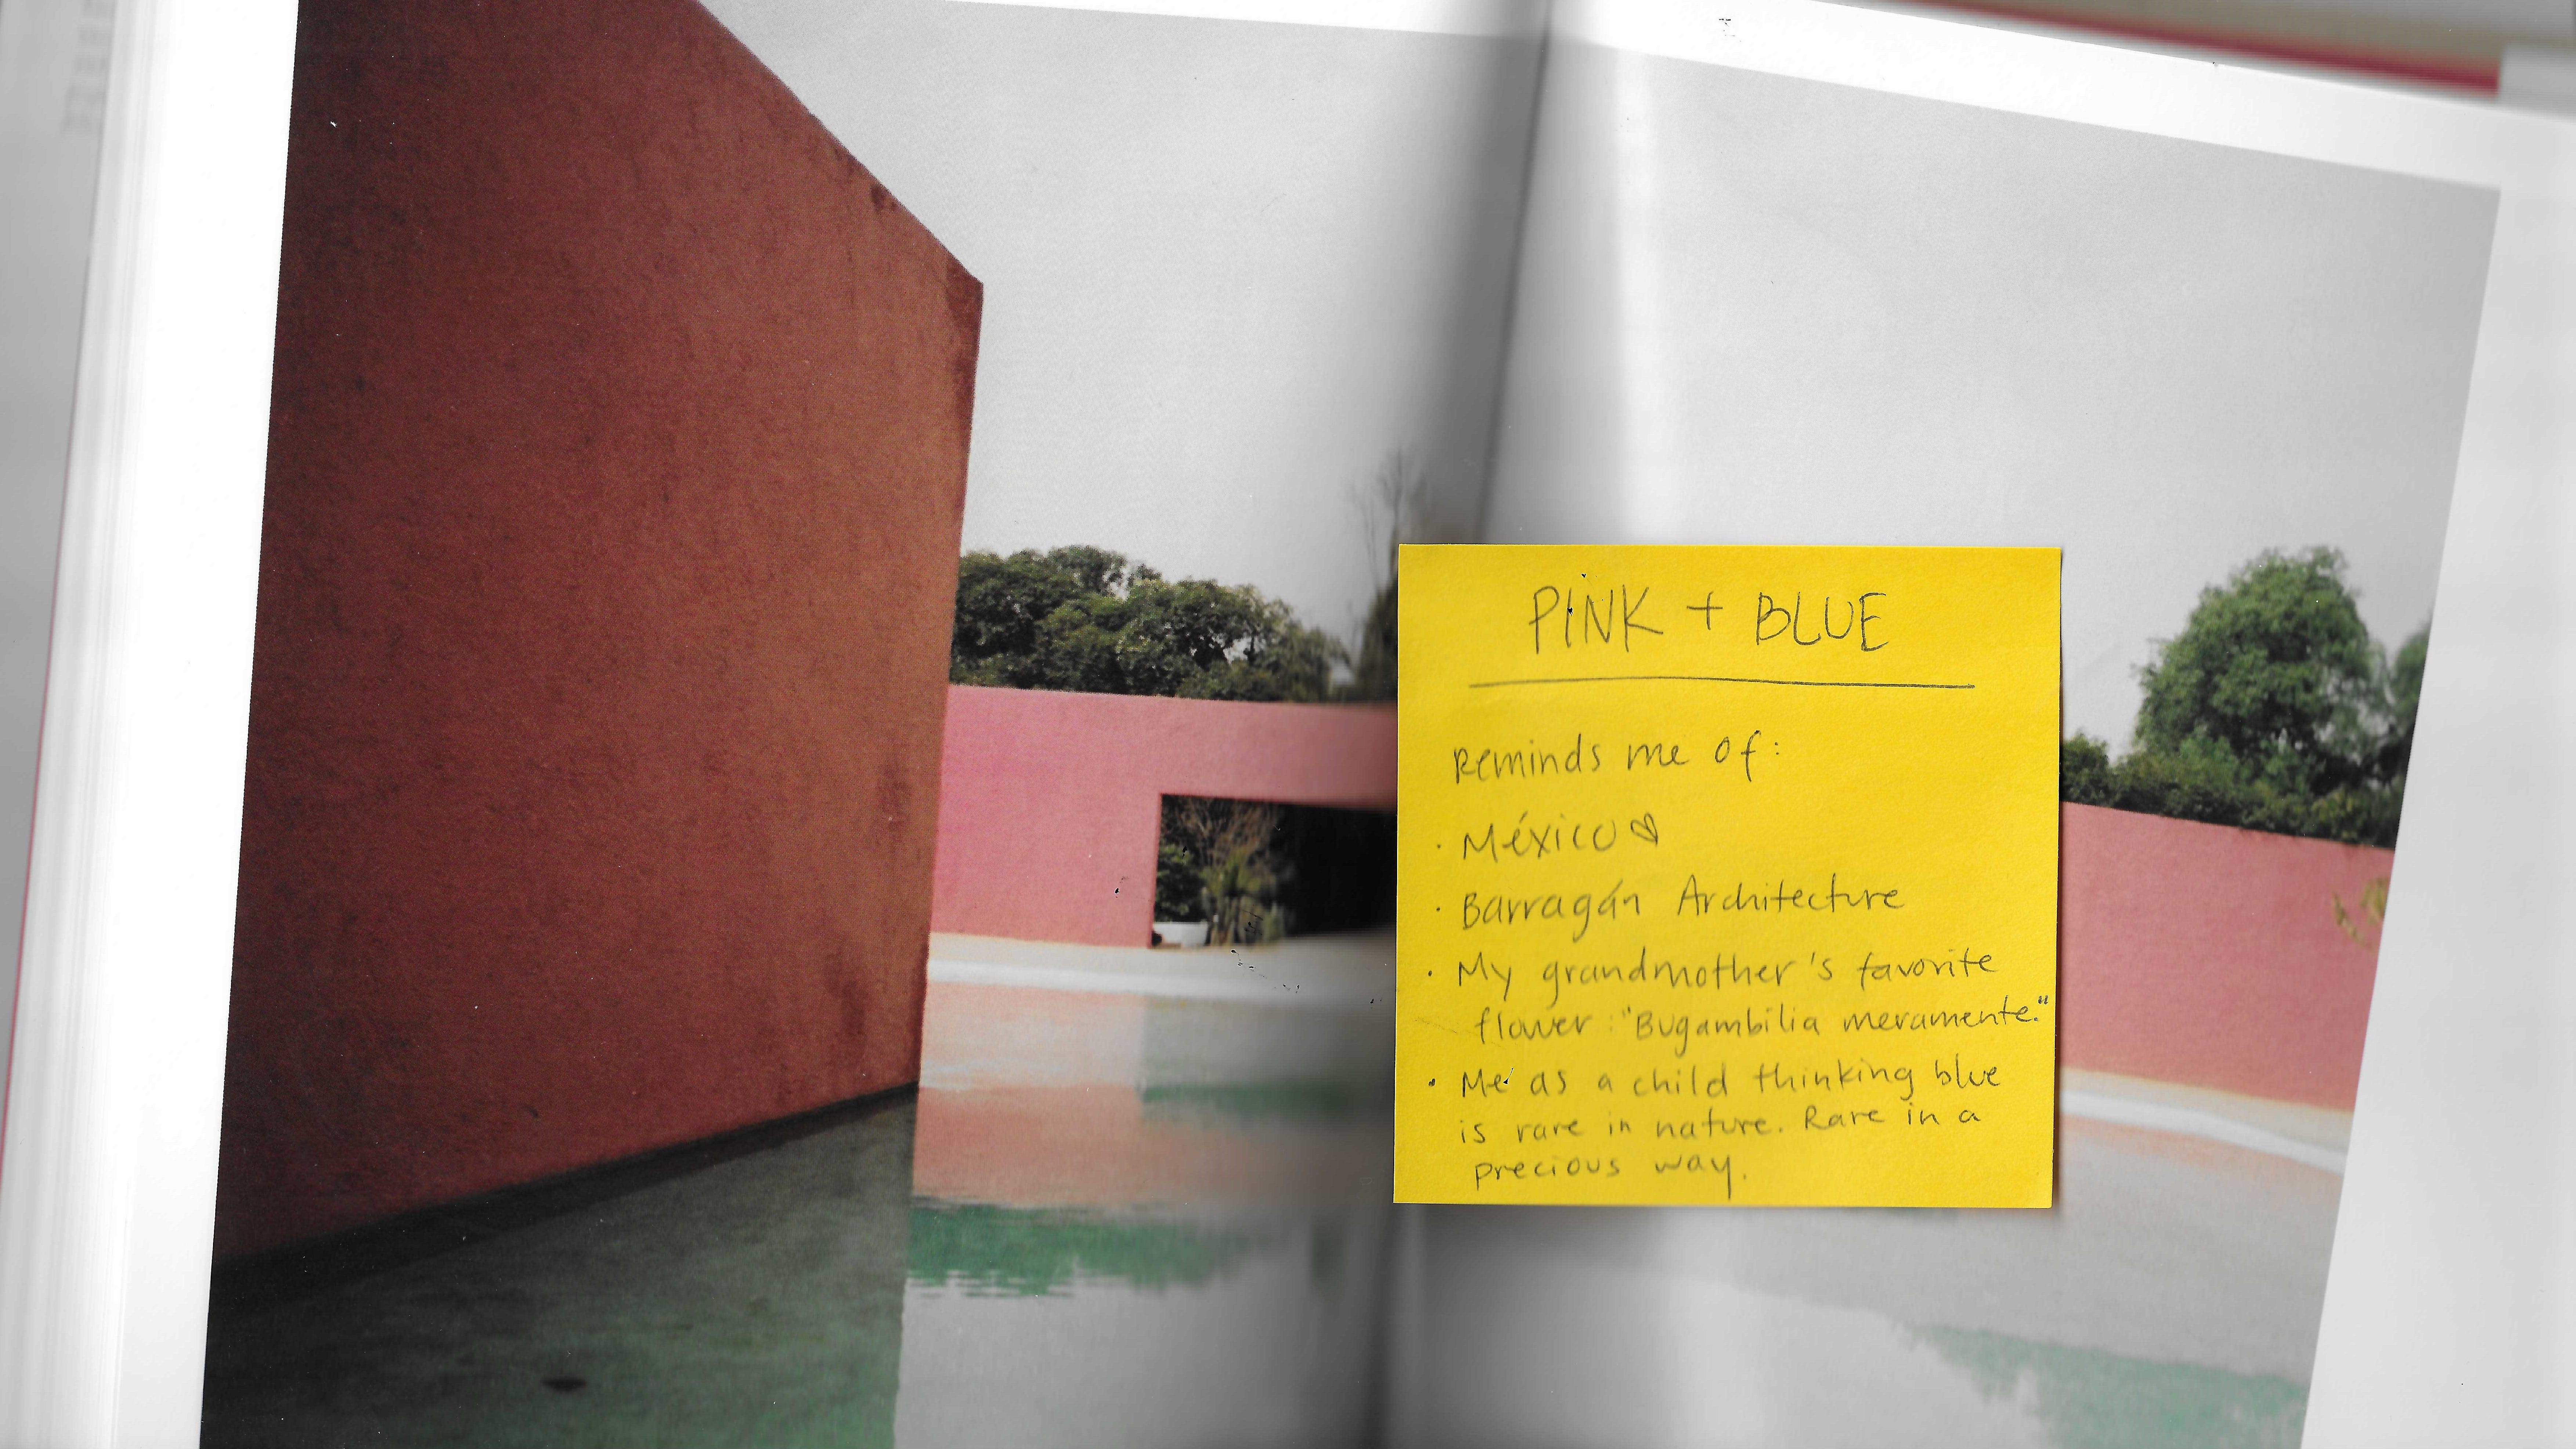 PINK + BLUE
Reminds me of:
· México ♡
· Barragán Architecture
· My grandmother's favorite
flower: "Bugambilia meramente."
· Me as a child thinking blue
is rare in nature. Rare in a
precious way.